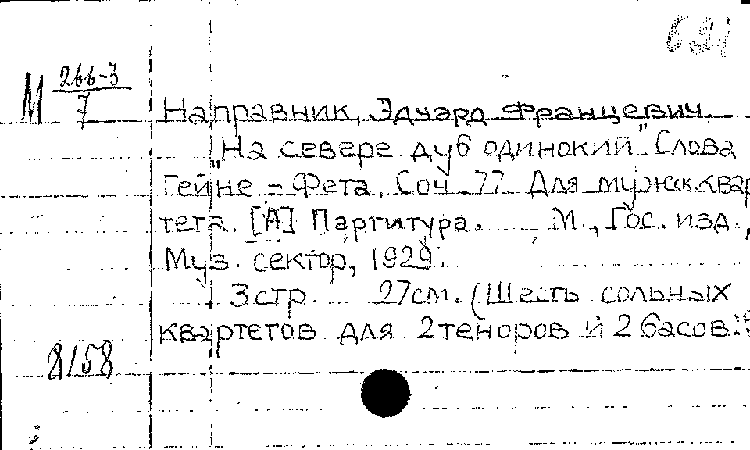 621
М 266-3
7
Направник, Эдуард Францевич.
"На севере дуб одинокий". Слова
Гейне - Фета. Соч. 77. Для мужск. квар
тета. [А] Партитура. М., Гос. изд.,
Муз. сектор, 1929.
3 стр. 27 см. (Шесть сольных
квартетов для 2 теноров и 2 басов:
8158